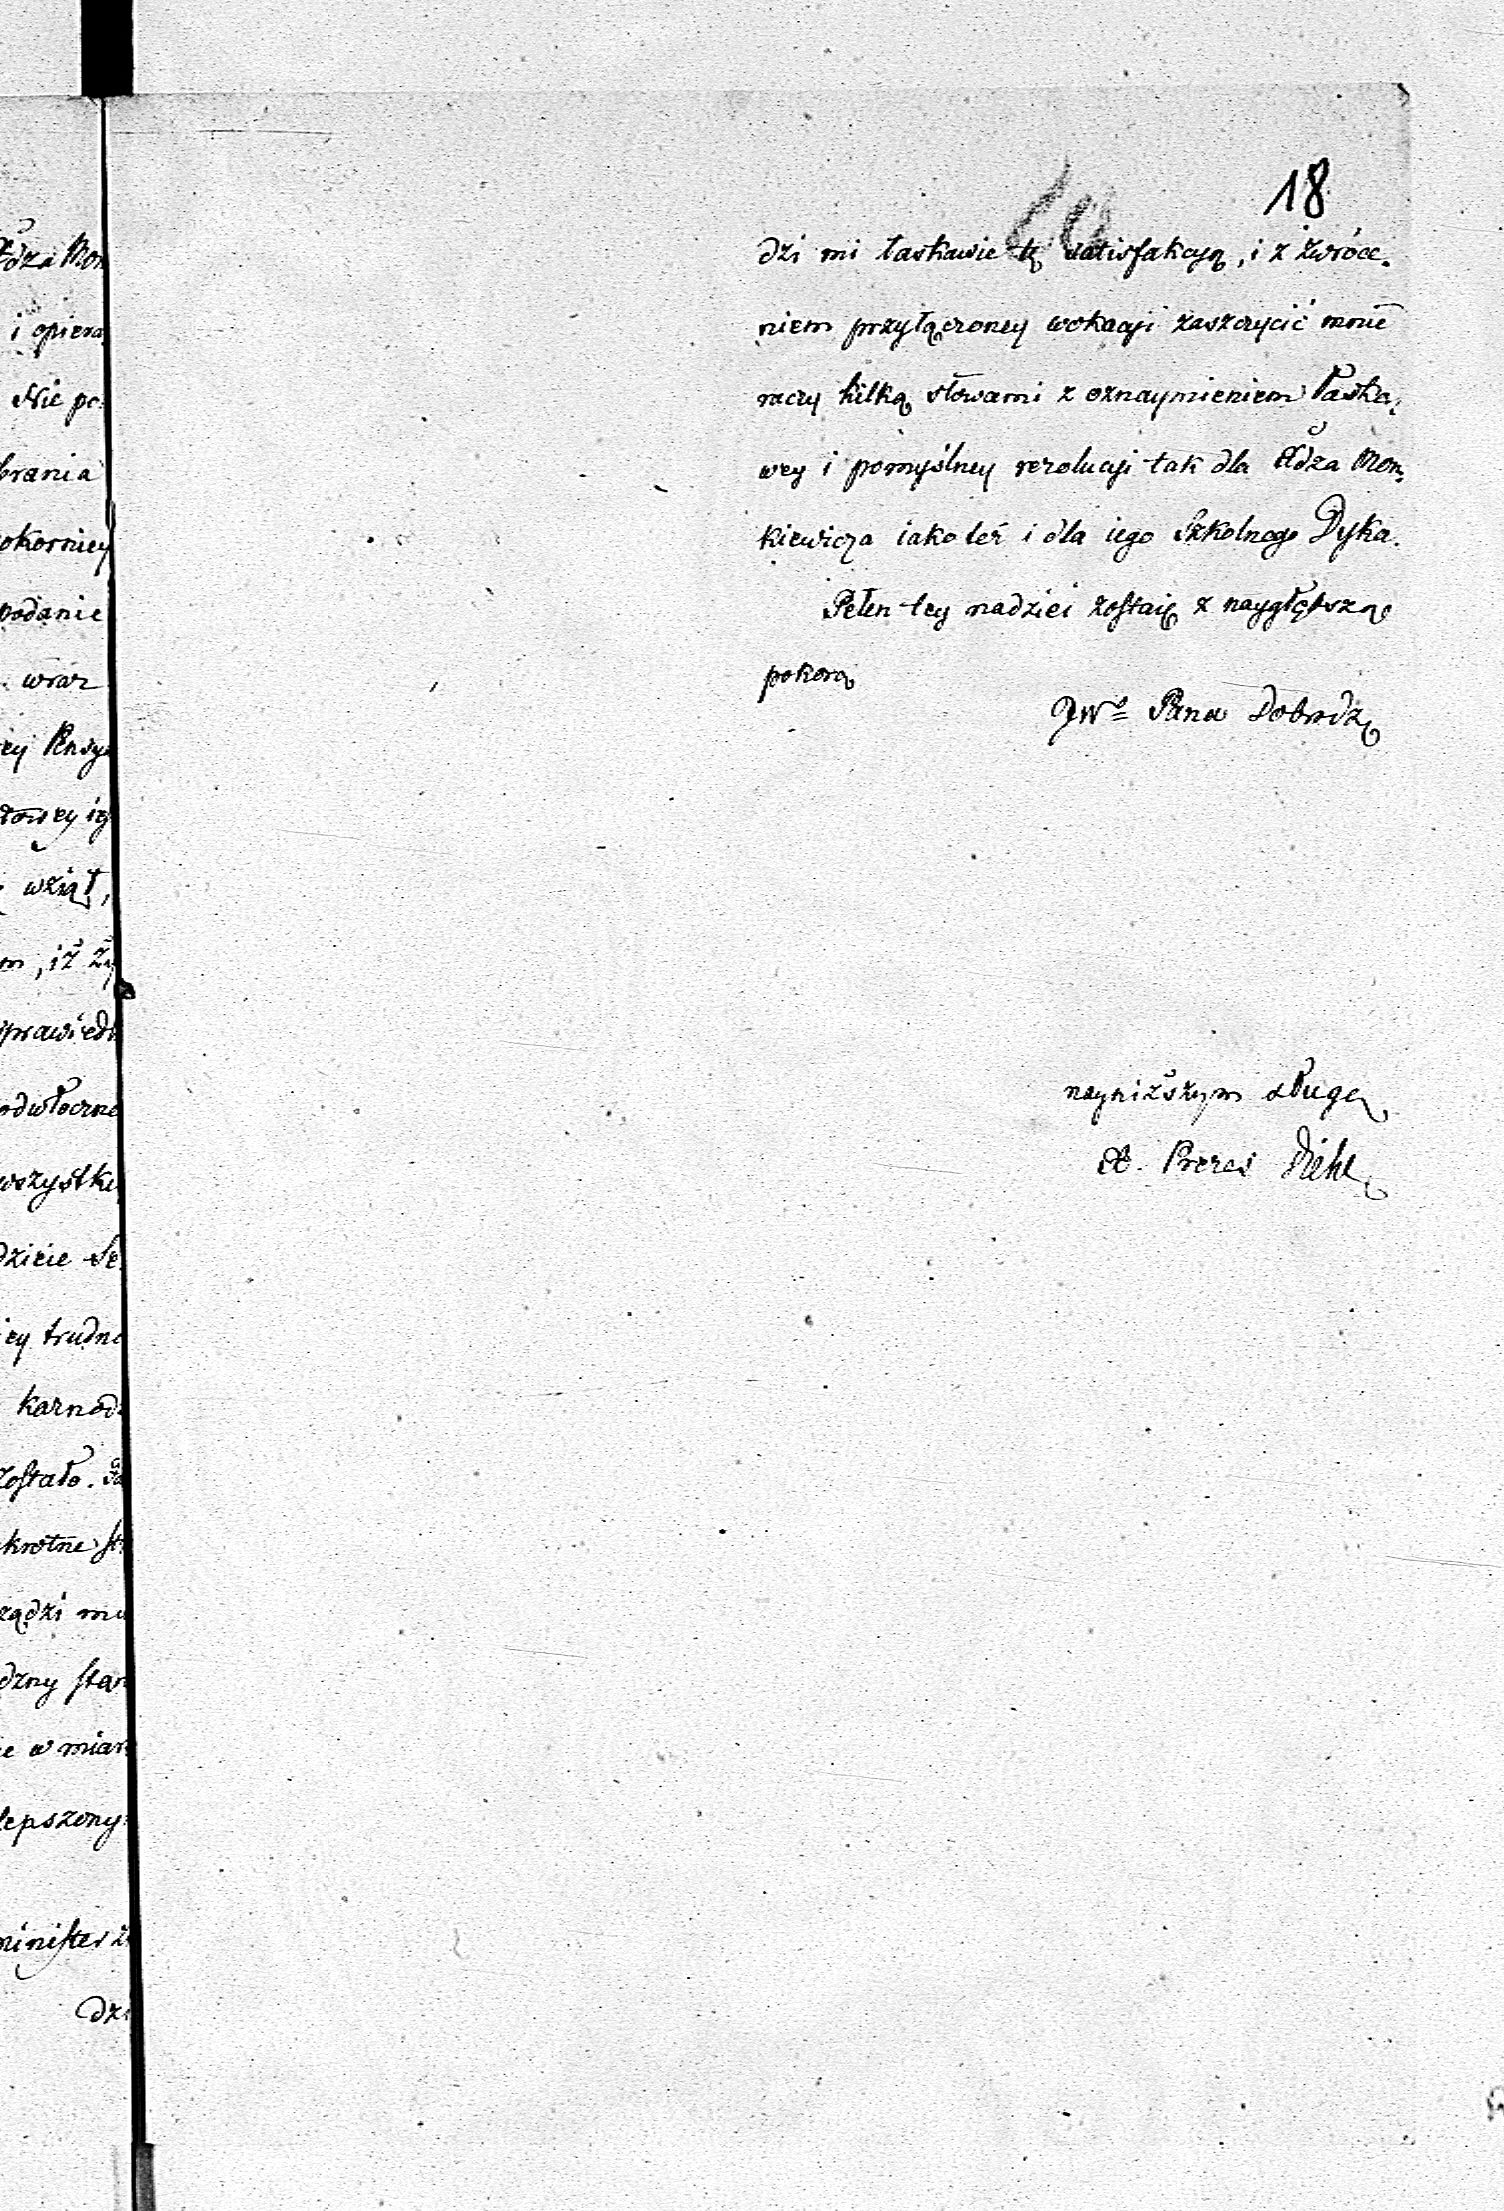 18
dzi mi łaskawie tę satisfakcyą, i z zwróce-
niem przyłączoney wokacyi zaszczycić mnie
raczy kilką słowami z oznaymieniem łaska-
wey i pomyślney rezolucyi tak dla Xdza Mon-
kiewicza iako też i dla iego Szkolnego Dyka.
Pełen tey nadziei zostaię z naygłębszą
pokorą
JWo Pana Dobrodz
nayniższym sługą
X. Prezes Diehl
Xdza Mon
i opiera
Nie po-
brania
okorniey
podanie
wraz
ey Pensy
wziął,
m, iż ży
sprawiedl
odwłoczne
wszystkie
dzicie Se
ey trudno
karnod
zostało. Ja
krotne st
ządzi mu
dzny stan
e w miar
lepszony
minister z
dzi